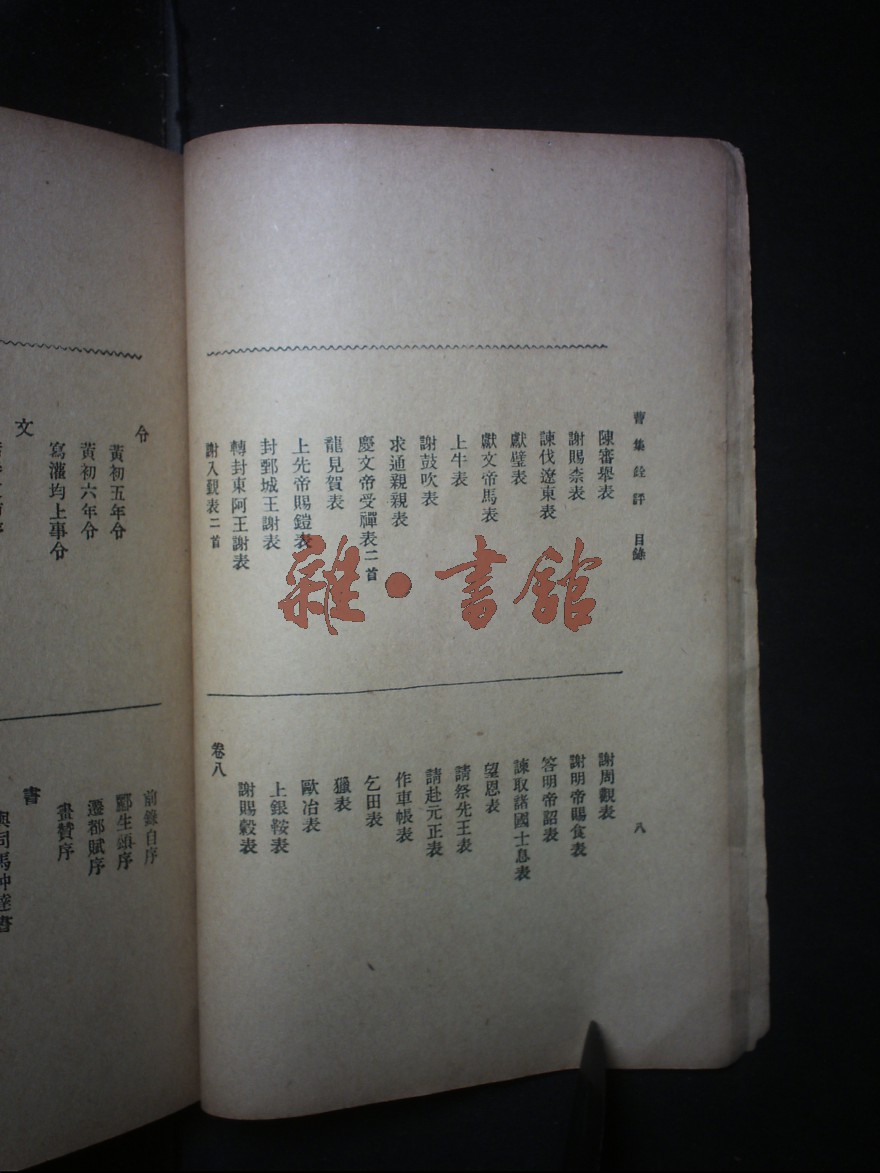 曹集銓評 目錄
八
陳審舉表
謝賜柰表
諫伐遼東表
獻璧表
獻文帝馬表
上牛表
謝鼓吹表
求通親親表
慶文帝受禪表二首
龍見賀表
上先帝賜鎧表
封鄄城王謝表
轉封東阿王謝表
謝入覲表二首
謝周觀表
謝明帝賜食表
答明帝詔表
諫取諸國士息表
望恩表
請祭先王表
請赴元正表
作車帳表
乞田表
獵表
歐冶表
上銀鞍表
謝賜穀表
卷八
令
黃初五年令
黃初六年令
寫灌均上事令
文
前錄自序
酈生頌序
遷都賦序
畫贊序
書
與司馬仲達書
雜·書館